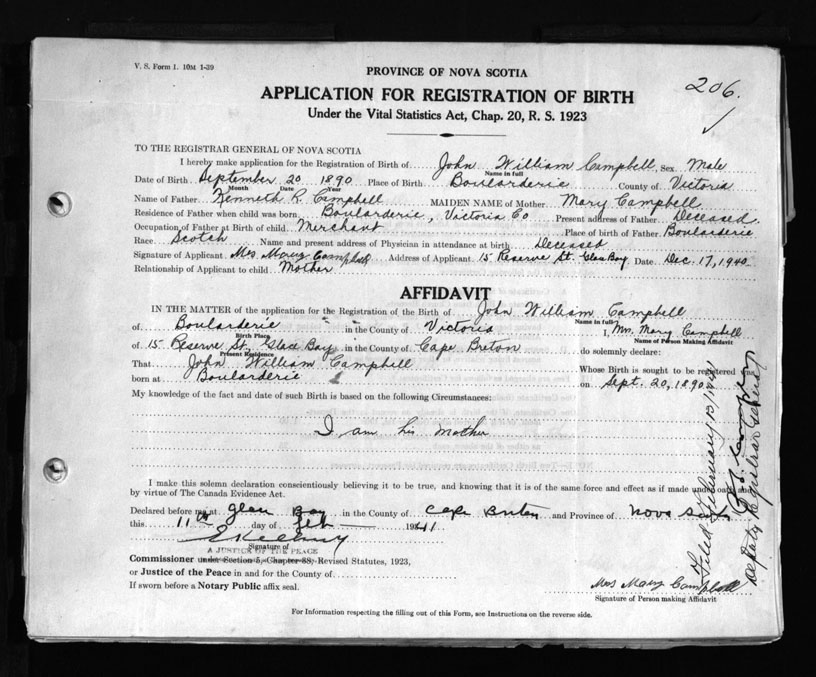 V. S. Form 1. 10M 1-39
206.
PROVINCE OF NOVA SCOTIA
APPLICATION FOR REGISTRATION OF BIRTH
Under the Vital Statistics Act, Chap. 20, R. S. 1923
TO THE REGISTRAR GENERAL OF NOVA SCOTIA
I hereby make application for the Registration of Birth of John William Campbell, Sex Male
Name in full
Date of Birth September 20 1890 Place of Birth Boularderie County of Victoria
Month Date Year
Name of Father Kenneth L. Campbell MAIDEN NAME of Mother Mary Campbell
Residence of Father when child was born Boularderie, Victoria Co Present address of Father Deceased.
Occupation of Father at Birth of child Merchant Place of birth of Father Boularderie
Race Scotch Name and present address of Physician in attendance at birth Deceased
Signature of Applicant Mrs Mary Campbell Address of Applicant 15 Reserve St. Glace Bay Date Dec. 17, 1940
Relationship of Applicant to child Mother
AFFIDAVIT
IN THE MATTER of the application for the Registration of the Birth of John William Campbell
Name in full
of Boularderie in the County of Victoria I, Mrs. Mary Campbell
Birth Place Name of Person Making Affidavit
of 15 Reserve St. Glace Bay in the County of Cape Breton do solemnly declare:
Present Residence
That John William Campbell Whose Birth is sought to be registered was
born at Boularderie on Sept. 20, 1890
My knowledge of the fact and date of such Birth is based on the following Circumstances:
I am his mother
I make this solemn declaration conscientiously believing it to be true, and knowing that it is of the same force and effect as if made under oath and
by virtue of The Canada Evidence Act.
Declared before me at Glace Bay in the County of Cape Breton and Province of Nova Scotia
this 11th day of Feb 1941
Signature of
A JUSTICE OF THE PEACE
Commissioner under Section 5, Chapter 88, Revised Statutes, 1923,
or Justice of the Peace in and for the County of
If sworn before a Notary Public affix seal.
Mrs Mary Campbell
Signature of Person making Affidavit
For Information respecting the filling out of this Form, see Instructions on the reverse side.
Filed February 13/1941
Deputy Registrar General